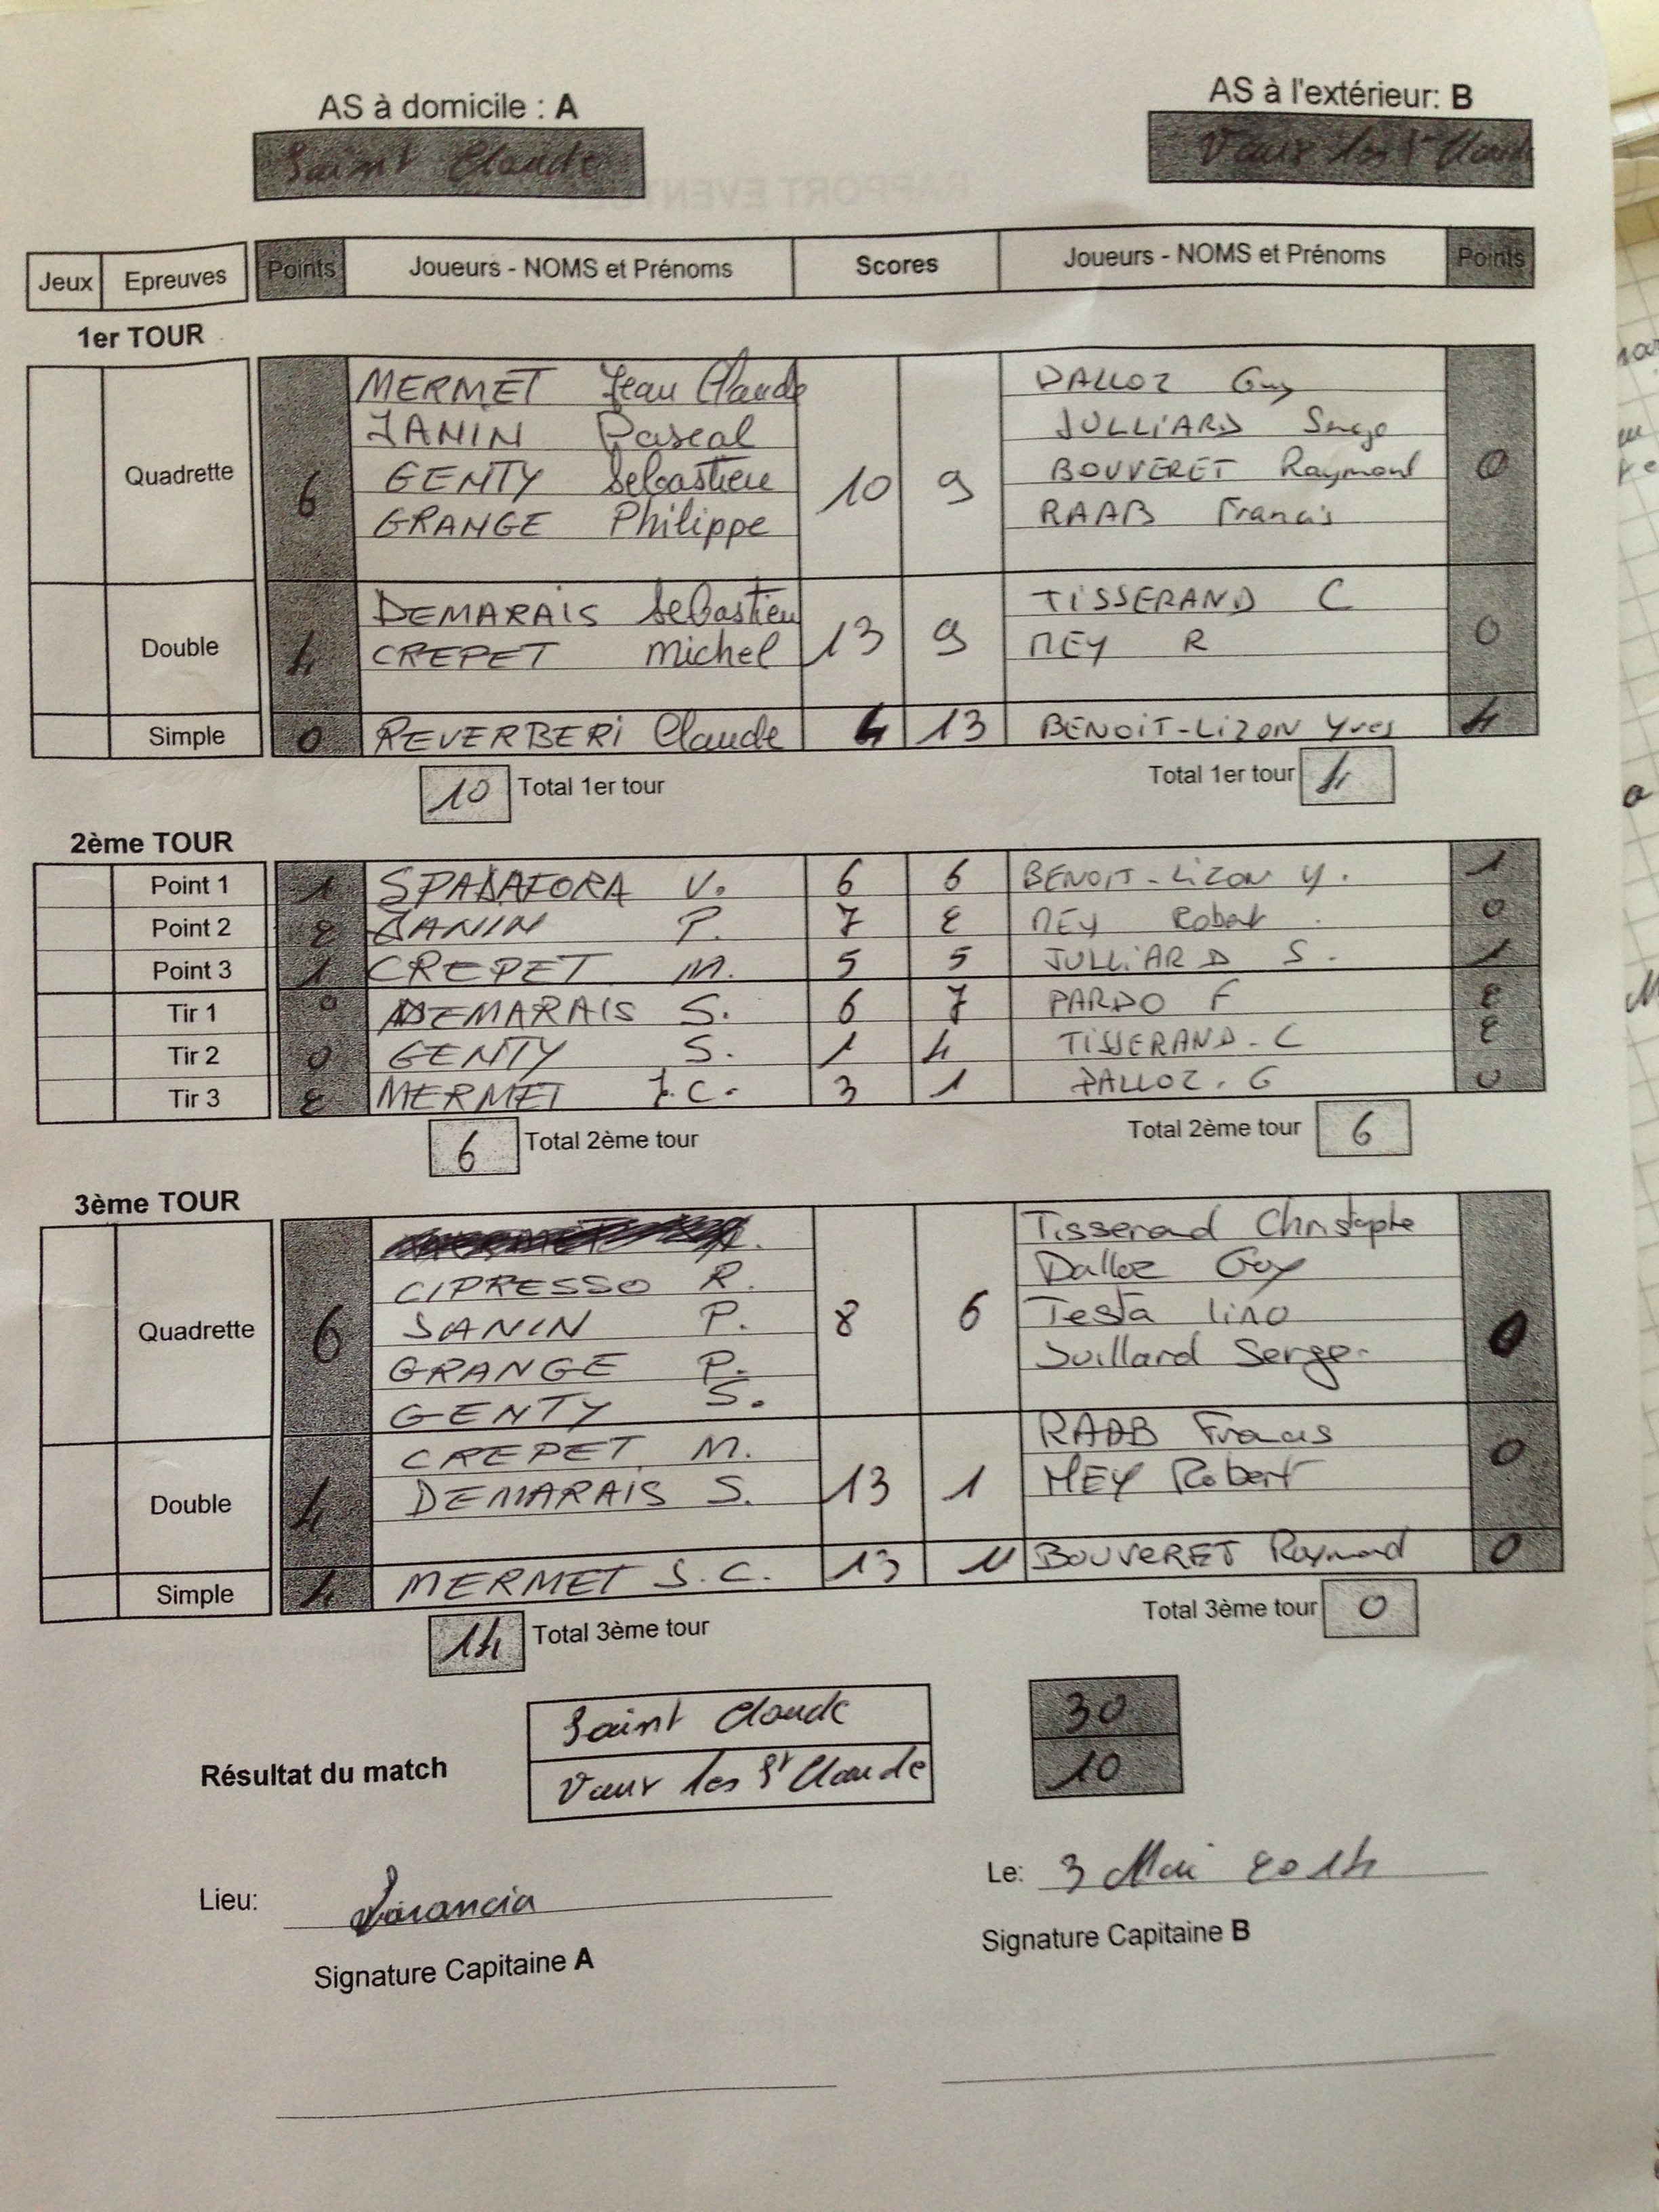 AS à domicile : A
AS à l'extérieur: B
Saint Claude
Vaux les St Claude
Jeux Epreuves Points Joueurs - NOMS et Prénoms Scores Joueurs - NOMS et Prénoms Points
1er TOUR
Quadrette
6
MERMET Jean Claude
JANIN Pascal
GENTY Sebastien
GRANGE Philippe
10 9
DALLOZ Guy
JULLIARD Serge
BOUVERET Raymond
RAAB Francis
0
Double
4
DEMARAIS Sebastien
CREPET Michel
13 9
TISSERAND C
MEY R
0
Simple 0 REVERBERI Claude 4 13 BENOIT-LIZON Yves 4
10 Total 1er tour
Total 1er tour 4
2ème TOUR
Point 1 1 SPADAFORA V. 6 6 BENOIT-LIZON Y. 1
Point 2 2 JANIN P. 7 2 MEY Robert 0
Point 3 1 CREPET M. 5 5 JULLIARD S. 1
Tir 1 0 DEMARAIS S. 6 7 PARDO F 2
Tir 2 0 GENTY S. 1 4 TISSERAND. C 2
Tir 3 2 MERMET J.C. 3 1 DALLOZ. G 0
6 Total 2ème tour
Total 2ème tour 6
3ème TOUR
Quadrette
6
CIPRESSO R.
JANIN P.
GRANGE P.
GENTY S.
8 6
Tisserand Christophe
Dalloz Guy
Testa lino
Juillard Serge.
0
Double
4
CREPET M.
DEMARAIS S.
13 1
RAAB Francis
MEY Robert
0
Simple 4 MERMET J.C. 13 11 BOUVERET Raymond 0
14 Total 3ème tour
Total 3ème tour 0
Résultat du match
Saint Claude 30
Vaux les St Claude 10
Lieu:
Le: 3 Mai 2014
Signature Capitaine A
Signature Capitaine B